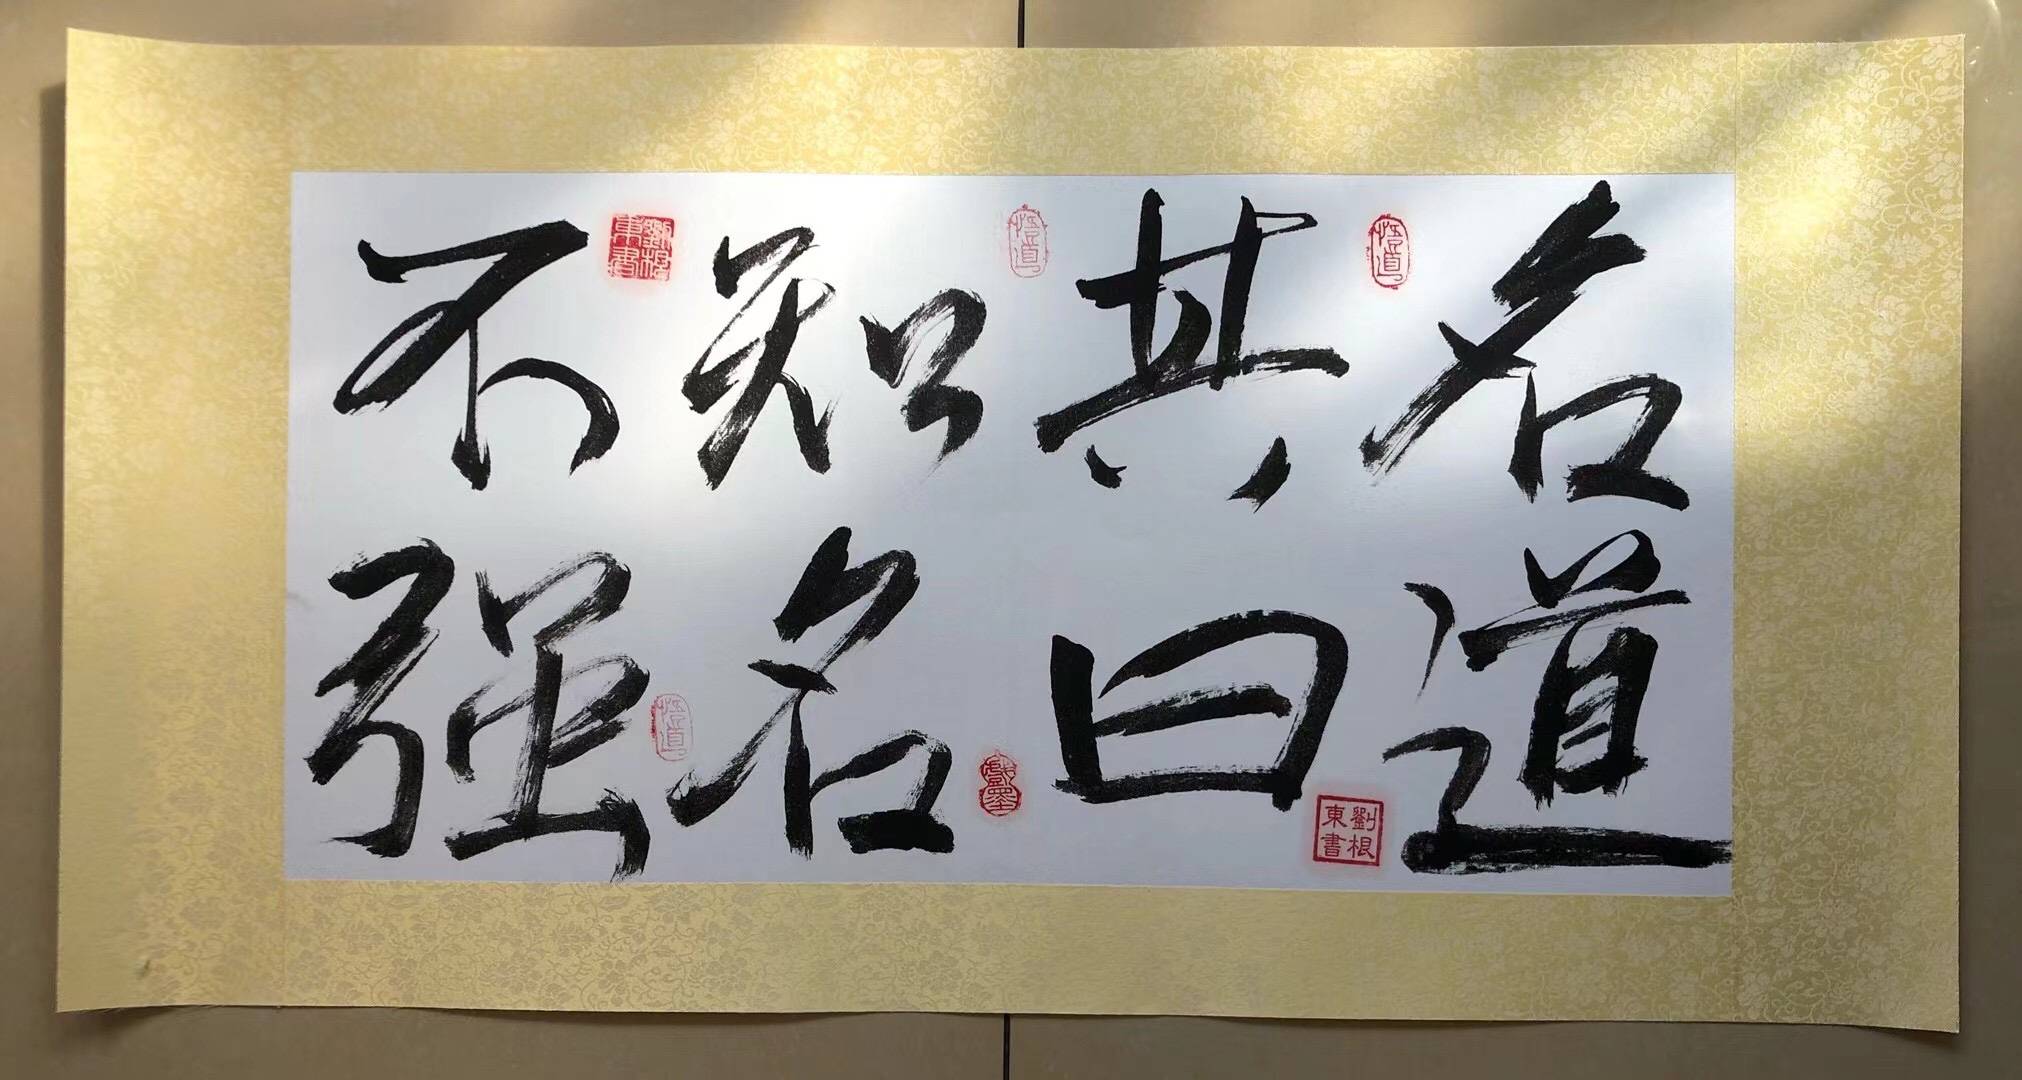 不知其名
强名曰道
劉根東書
悟道
悟道
劉根東書
悟道
戲墨